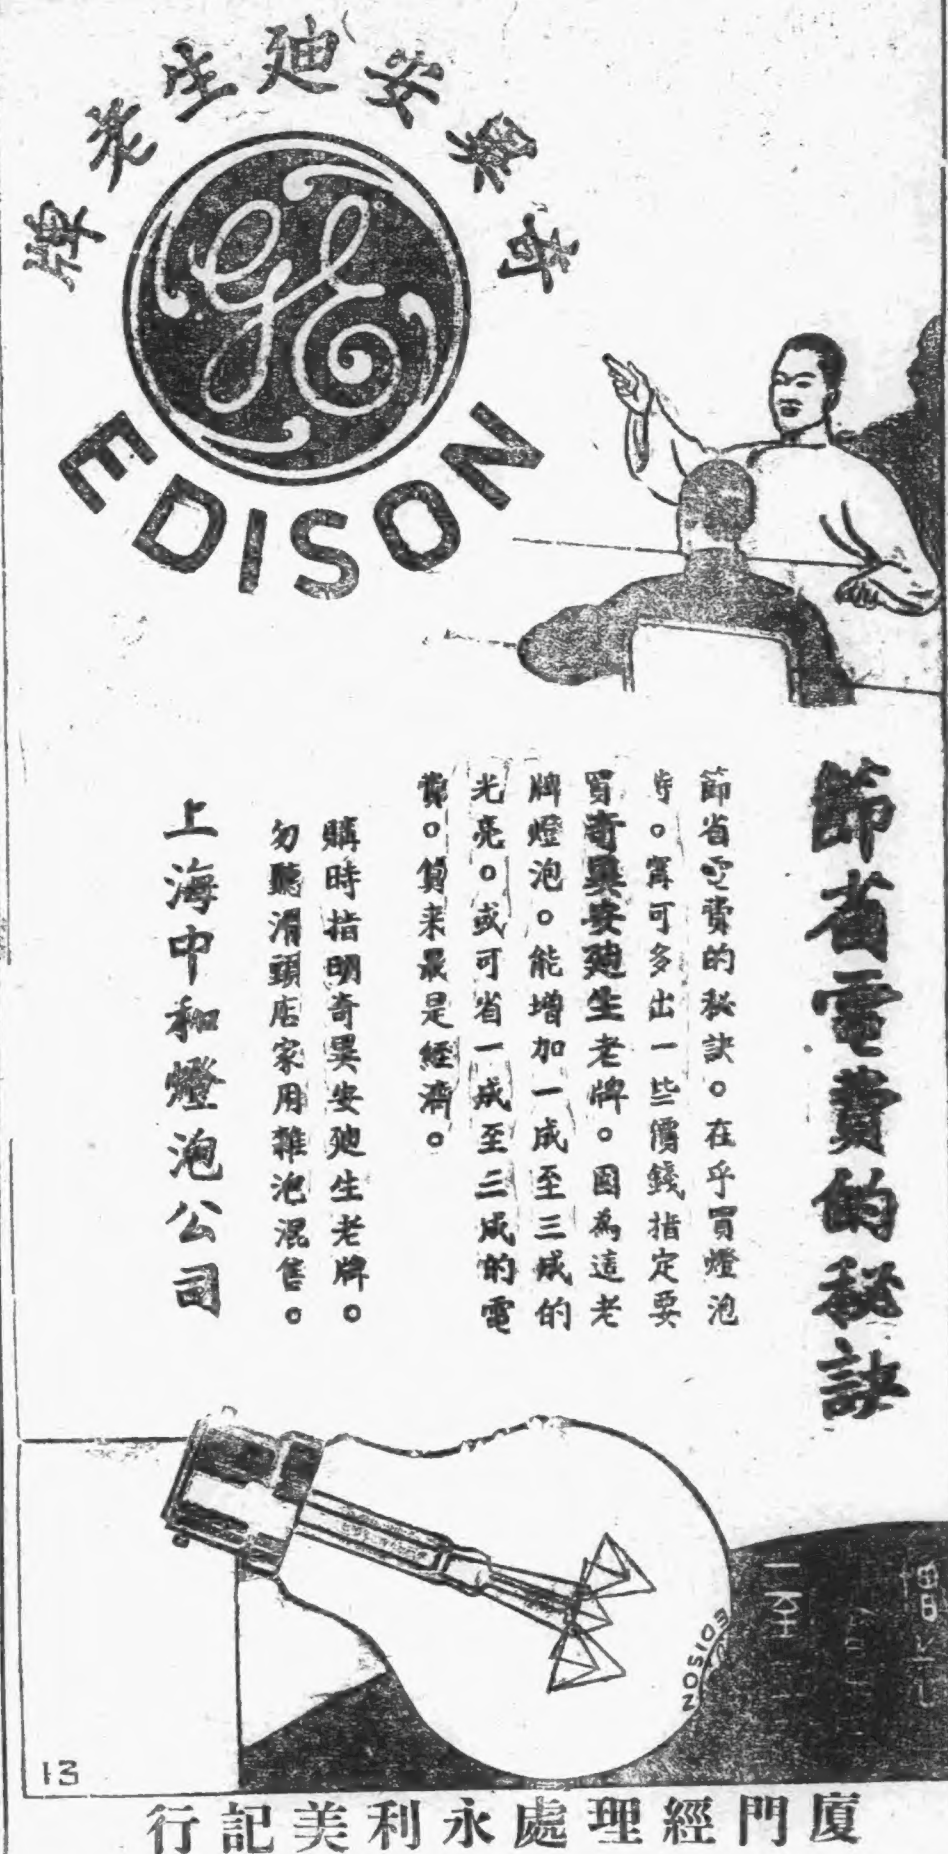 奇異安廸生老牌
GE
EDISON
節省電費的秘訣
節省電費的秘訣。在乎買燈泡
時。寧可多出一些價錢指定要
買奇異安廸生老牌。因為這老
牌燈泡。能增加一成至三成的
光亮。或可省一成至三成的電
費。算来最是經濟。
購時指明奇異安廸生老牌。
勿聽滑頭店家用雜泡混售。
上海中和燈泡公司
EDISON
13
廈門經理處永利美記行